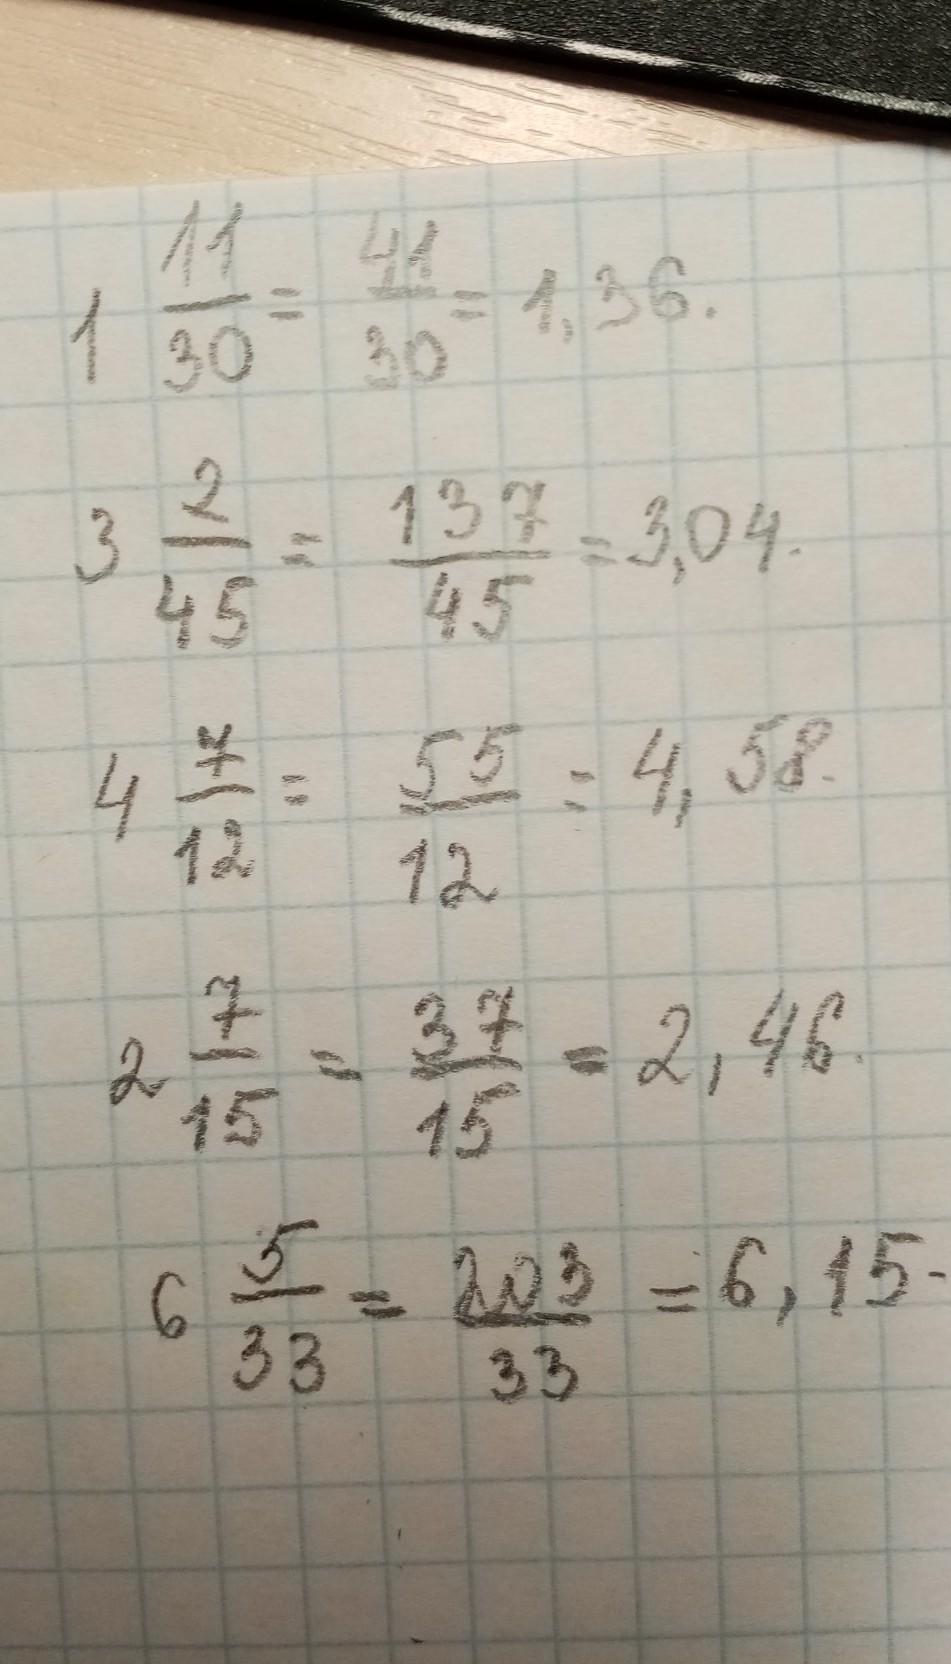 1 11/30 = 41/30 = 1,36.
3 2/45 = 137/45 = 3,04.
4 7/12 = 55/12 = 4,58.
2 7/15 = 37/15 = 2,46.
6 5/33 = 203/33 = 6,15.